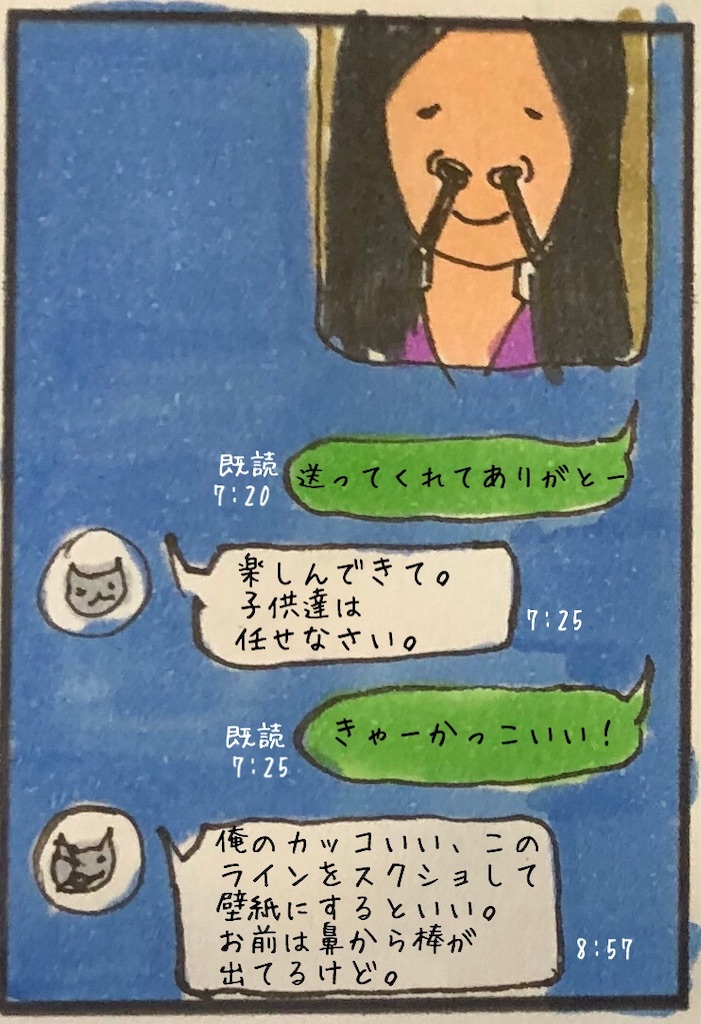 送ってくれてありがとー
既読
7:20
楽しんできて。
子供達は
任せなさい。
7:25
きゃーかっこいい!
既読
7:25
俺のカッコいい、この
ラインをスクショして
壁紙にするといい。
お前は鼻から棒が
出てるけど。
8:57